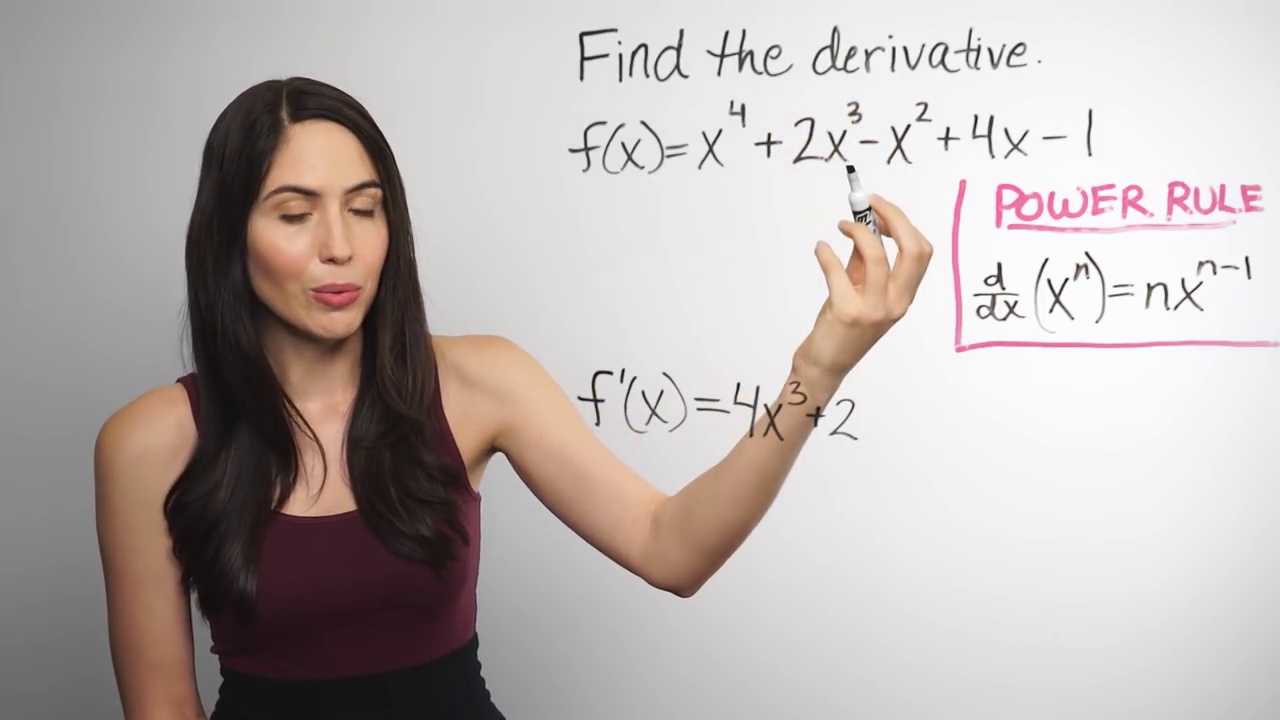 Find the derivative.
f(x)=x⁴+2x³-x²+4x-1
POWER RULE
d/dx(xⁿ)=nxⁿ⁻¹
f'(x)=4x³+2